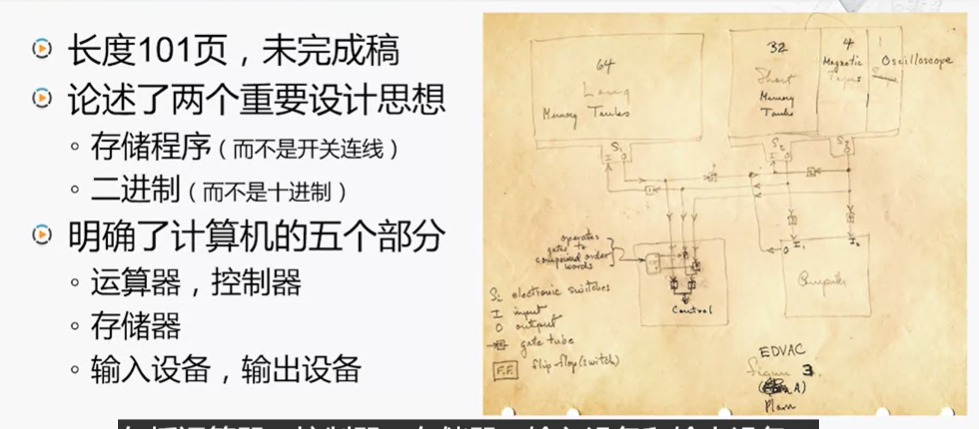 长度101页，未完成稿
论述了两个重要设计思想
存储程序（而不是开关连线）
二进制（而不是十进制）
明确了计算机的五个部分
运算器，控制器
存储器
输入设备，输出设备
64
Long
Memory Tanks
32
Short
Memory
Tanks
4
Magnetic
Tapes
1
Oscilloscope
S1
I O
S2
I O
S3
operates
gates to
compound order
words
Control
O
I1
I2
Computer
S2 electronic switches
I input
O output
gate tube
F.F. flip-flop (switch)
EDVAC
figure 3.
A)
Plan